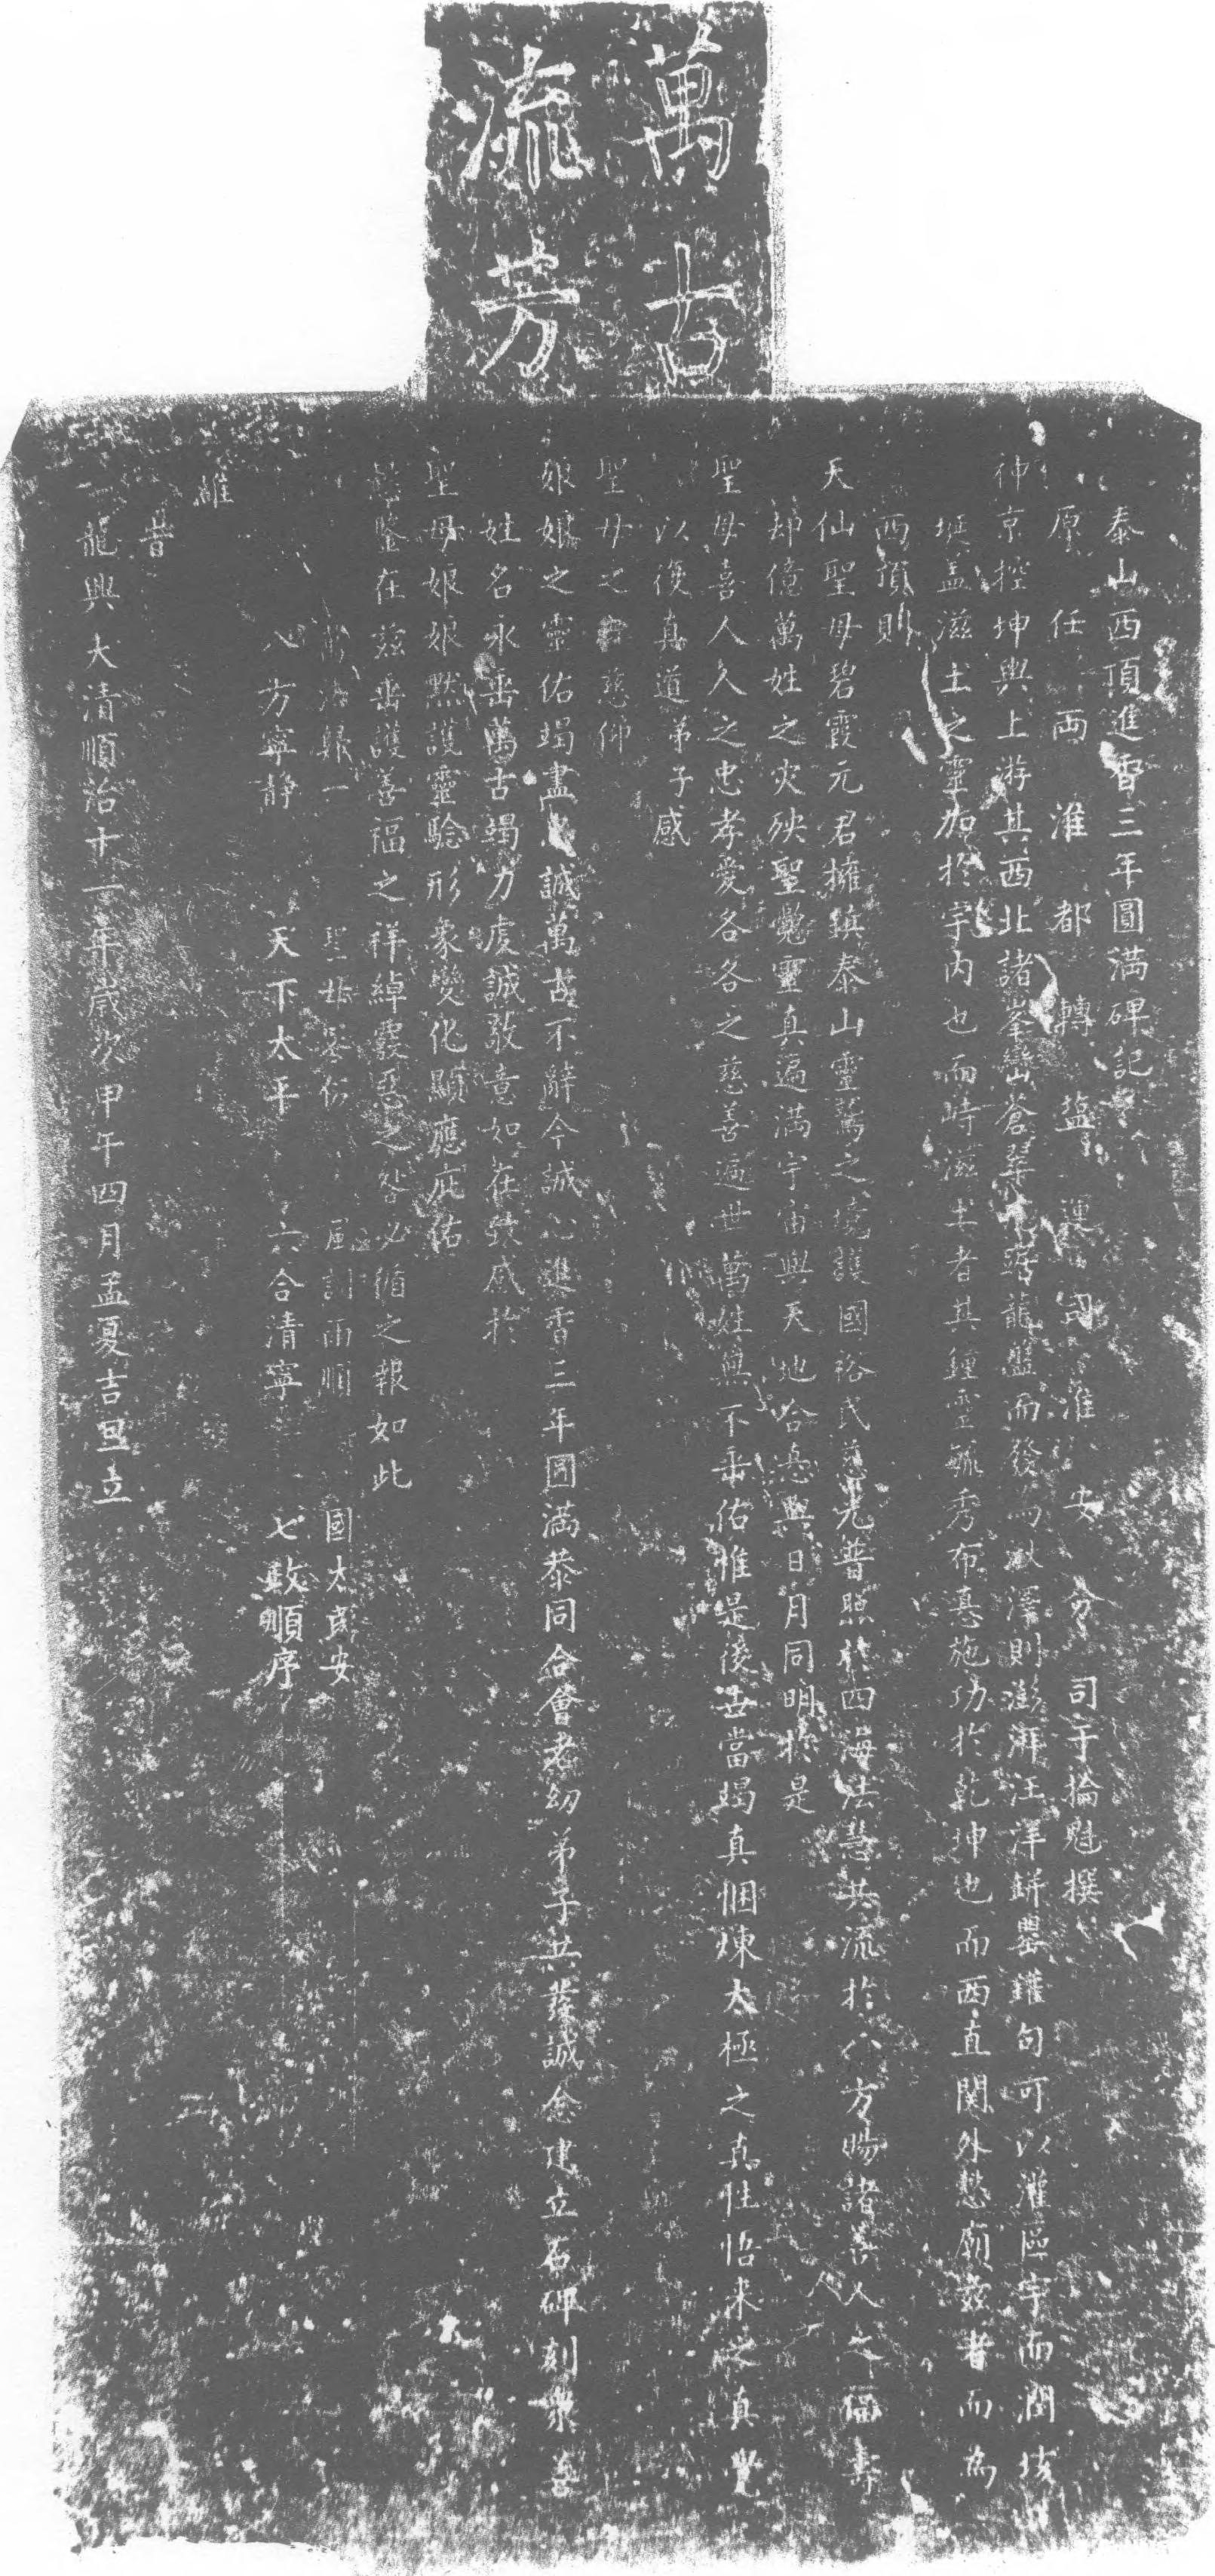 萬古
流芳
泰山西頂進香三年圓滿碑記
原任兩淮都轉鹽運司淮安分司于掄魁撰
神京控坤輿上游其西北諸峯巒蒼翠龍盤而發為以澤則澎湃汪洋缾罌罐句可以灌區宇而潤垓
埏盖滋土之靈加於宇内也而峙滋土者其鍾靈毓秀布惪施功於乾坤也而西直関外愁廟兹者而為
西頂則
天仙聖母碧霞元君擁鎮泰山靈鷲之境護國裕民慈光普照於四海法慧共流於八方賜諸善人之福壽
却億萬姓之灾殃聖覺靈真遍满宇宙與天地合惪與日月同明於是
聖母喜人久之忠孝愛各各之慈善遍世萬姓無不垂佑惟是後世當竭真悃煉太極之真性悟來之真覺
以復真道弟子感
聖母之慈仰
娘娘之靈佑竭盡心誠萬古不辭今誠心進香三年圓满恭同合會老幼弟子共發誠念建立石碑刻衆善
姓名永垂萬古竭力虔誠敬意如在感於
聖母娘娘黙護靈驗形象變化顯應庇佑
鑒在兹垂護善福之祥綽惡之咎必循之報如此
聖母 風調雨順 國太民安
八方寧静 天下太平 六合清寧 七政順序
維
昔
龍興大清順治十一年歳次甲午四月孟夏吉旦立